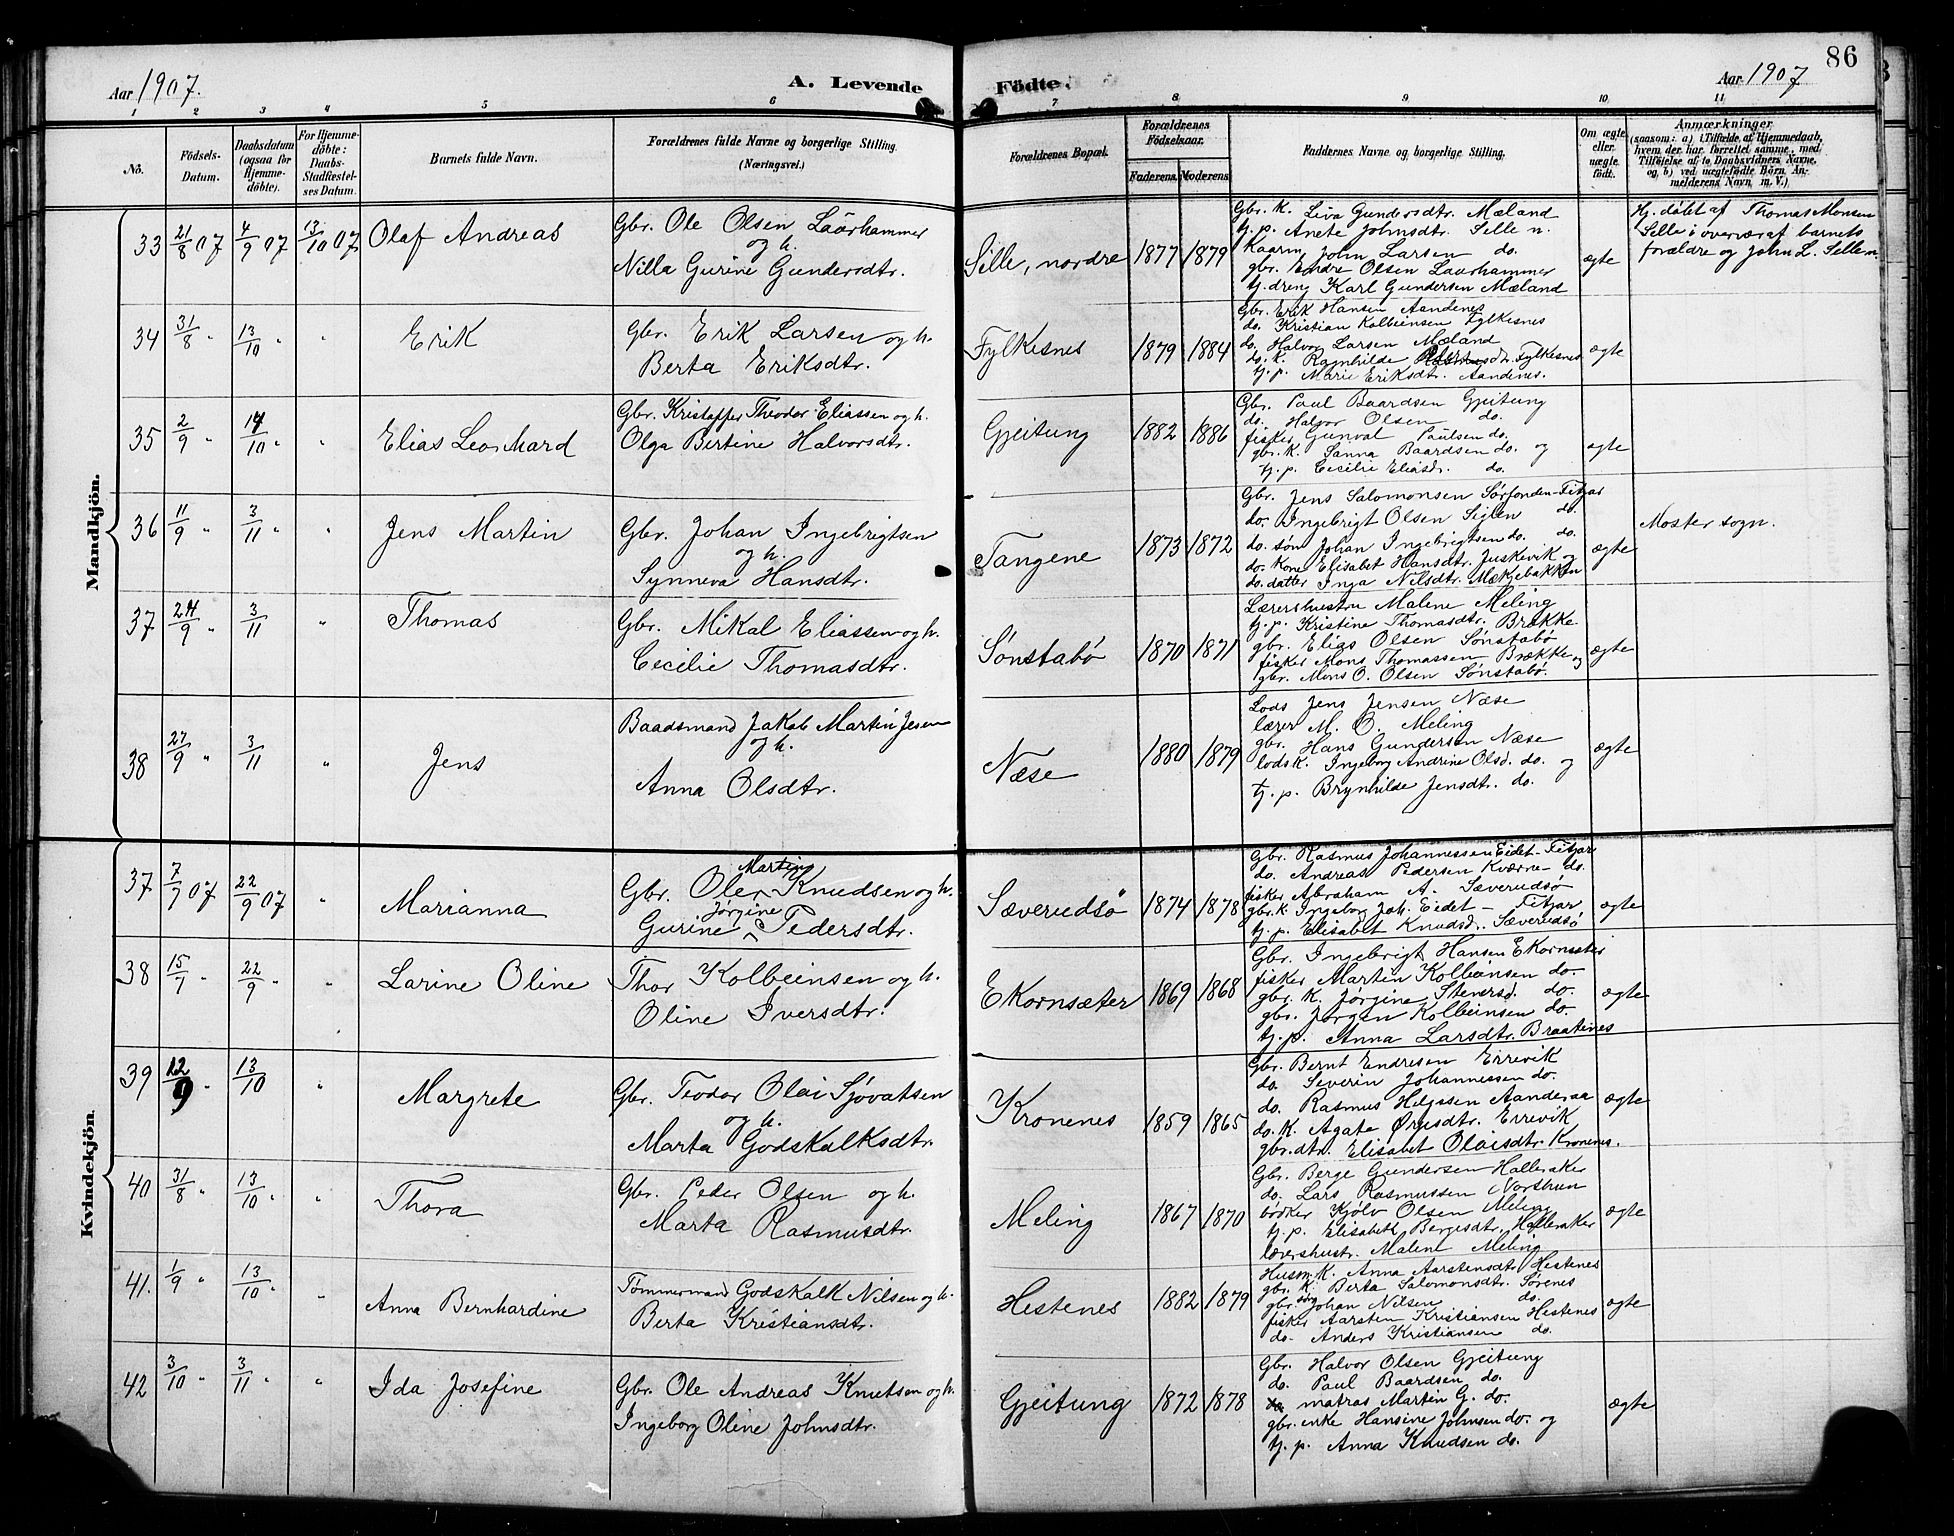 86
Aar 1907.
A. Levende Födte.
Aar 1907
1 2 3 4 5 6 7 8 9 10 11
No.
Födsels-
Datum.
Daabsdatum
(ogsaa for
Hjemme-
döbte).
For Hjemme-
döbte:
Daabs-
Stadfæstel-
ses Datum.
Barnets fulde Navn.
Forældrenes fulde Navne og borgerlige Stilling
(Næringsvei.)
Forældrenes Bopæl.
Forældrenes
Födselsaar.
Faderens. Moderens.
Faddernes Navne og borgerlige Stilling.
Om ægte
eller
uægte
födt.
Anmærkninger
(saasom: a) i Tilfælde af Hjemmedaab,
hvem der har forrettet samme, med
Tilföielse af to Daabsvidners Navne,
og b) ved uægtefödte Börn An-
melderens Navn m. V.)
Mandkjön.
33 21/8 07 4/9 07 13/10 07 Olaf Andreas
Gbr. Ole Olsen Laurhammer
og h.
Nilla Gurine Gundersdtr.
Sille, nordre 1877 1879
Gbr. k. Liva Gundersdtr. Mæland
tj. p. Anete Johnsdtr. Sille n.
Kaarm. John Larsen do.
gbr. Endre Olsen Laurhammer
tj. dreng Karl Gundersen Mæland
ægte
Hj. døbt af Thomas Monsen
Sille i overvær af barnets
forældre og John L. Sille n.
34 31/8 " 13/10 " " Erik
Gbr. Erik Larsen og h.
Berta Eriksdtr.
Fylkesnes 1879 1884
Gbr. Erik Hansen Aandenes
do. Kristian Kolbeinsen Fylkesnes
do. Halvor Larsen Mæland
do. k. Ragnhilde Fylkesnes
tj. p. Marie Eriksdtr. Aandenes.
ægte
35 2/9 " 14/10 " " Elias Leonhard
Gbr. Kristoffer Theodor Eliassen og h.
Olga Bertine Halvorsdtr.
Gjeitung 1882 1886
Gbr. Paul Baardsen Gjeitung
do. Halvor Olsen do.
fisker Gunval Paulsen do.
gbr. k. Sanna Baardsen do. og
tj. p. Cecilie Eliasd. do.
ægte
36 11/9 " 3/11 " " Jens Martin
Gbr. Johan Ingebrigtsen
og h.
Synneva Hansdtr.
Tangene 1873 1872
Gbr. Jens Salomonsen Sørfonden-Fitjar
do. Ingebrigt Olsen do.
do. søn Johan Ingebrigtsen do. do.
do. Kone Elisabet Hansdtr. Juskevik og
do. datter Inga Nilsdtr. Mækjebakken
ægte
Moster sogn.
37 24/9 " 3/11 " Thomas
Gbr. Mikal Eliassen og h.
Cecilie Thomasdtr.
Sønstabø 1870 1871
Lærershustru Malene Meling
tj. p. Kristine Thomasdtr. Brække
gbr. Elias Olsen Sønstabø
fisker Mons Thomassen Brække og
gbr. Mons O. Olsen Sønstabø.
ægte
38 27/9 " 3/11 " Jens
Baadsmand Jakob Martin Jensen
og h.
Anna Olsdtr.
Næse 1880 1879
Lods Jens Jensen Næse
lærer M. O. Meling
gbr. Hans Gundersen Næse
lods k. Ingeborg Andrine Olsd. do. og
tj. p. Brynhilde Jensdtr. do.
ægte
Kvindekjön.
37 7/9 07 22/9 07 " Marianna
Gbr. Ole Martin Knudsen og h.
Gurine Jørgine Pedersdtr.
Sæverudsø 1874 1878
Gbr. Rasmus Johannessen Eidet-Fitjar
do. Andreas Pedersen Kværne- do.
fisker Abraham A. Sæverudsø
gbr. k. Ingeborg Joh. Eidet - Fitjar
tj. p. Elisabet Knudsd. Sæverudsø
ægte
38 15/7 " 22/9 " " Larine Oline
Thor Kolbeinsen og h.
Oline Iversdtr.
Ekornsæter 1869 1868
Gbr. Ingebrigt Hansen Ekornsæter
fisker Martin Kolbeinsen do.
gbr. k. Jørgine Steversd. do.
gbr. Jørgen Kolbeinsen do.
tj. p. Anna Larsdtr. Braatenes
ægte
39 12/9 " 13/10 " Margrete
Gbr. Teodor Olai Sjovatsen
og h.
Marta Godskalksdtr.
Kronenes 1859 1865
Gbr. Bernt Endresen Errevik
do. Severin Johannessen do.
do. Rasmus Helgesen Aanderaa
do. k. Agate Ørjesdtr. Errevik
gbr. dtr. Elisabet Olaisdtr. Kronenes.
ægte
40 31/8 " 13/10 " " Thora
Gbr. Peder Olsen og h.
Marta Rasmusdtr.
Meling 1867 1870
Gbr. Berge Gundersen Halleraker
do. Lars Rasmussen Northun
bødker Kjølv Olsen Meling
tj. p. Elisabeth Bergesdtr. Halleraker
lærershustr. Malene Meling
ægte
41. 1/9 " 13/10 " " Anna Bernhardine
Tømmermand Godskalk Nilsen og h.
Berta Kristiansdtr.
Hestenes 1882 1879
Husm. k. Anna Aarstensdtr. Hestenes
gbr. k. Berta Salomonsdtr. Sørenes
gbr. søn Johan Nilsen do.
fisker Aarsten Kristiansen Hestenes
do. Anders Kristiansen do.
ægte
42 3/10 " 3/11 " " Ida Josefine
Gbr. Ole Andreas Knutsen og h.
Ingeborg Oline Johnsdtr.
Gjeitung 1872 1878
Gbr. Halvor Olsen Gjeitung
do. Paul Baardsen do.
matros Martin G. do.
gbr. enke Hansine Johnsen do. og
tj. p. Anna Knudsen do.
ægte